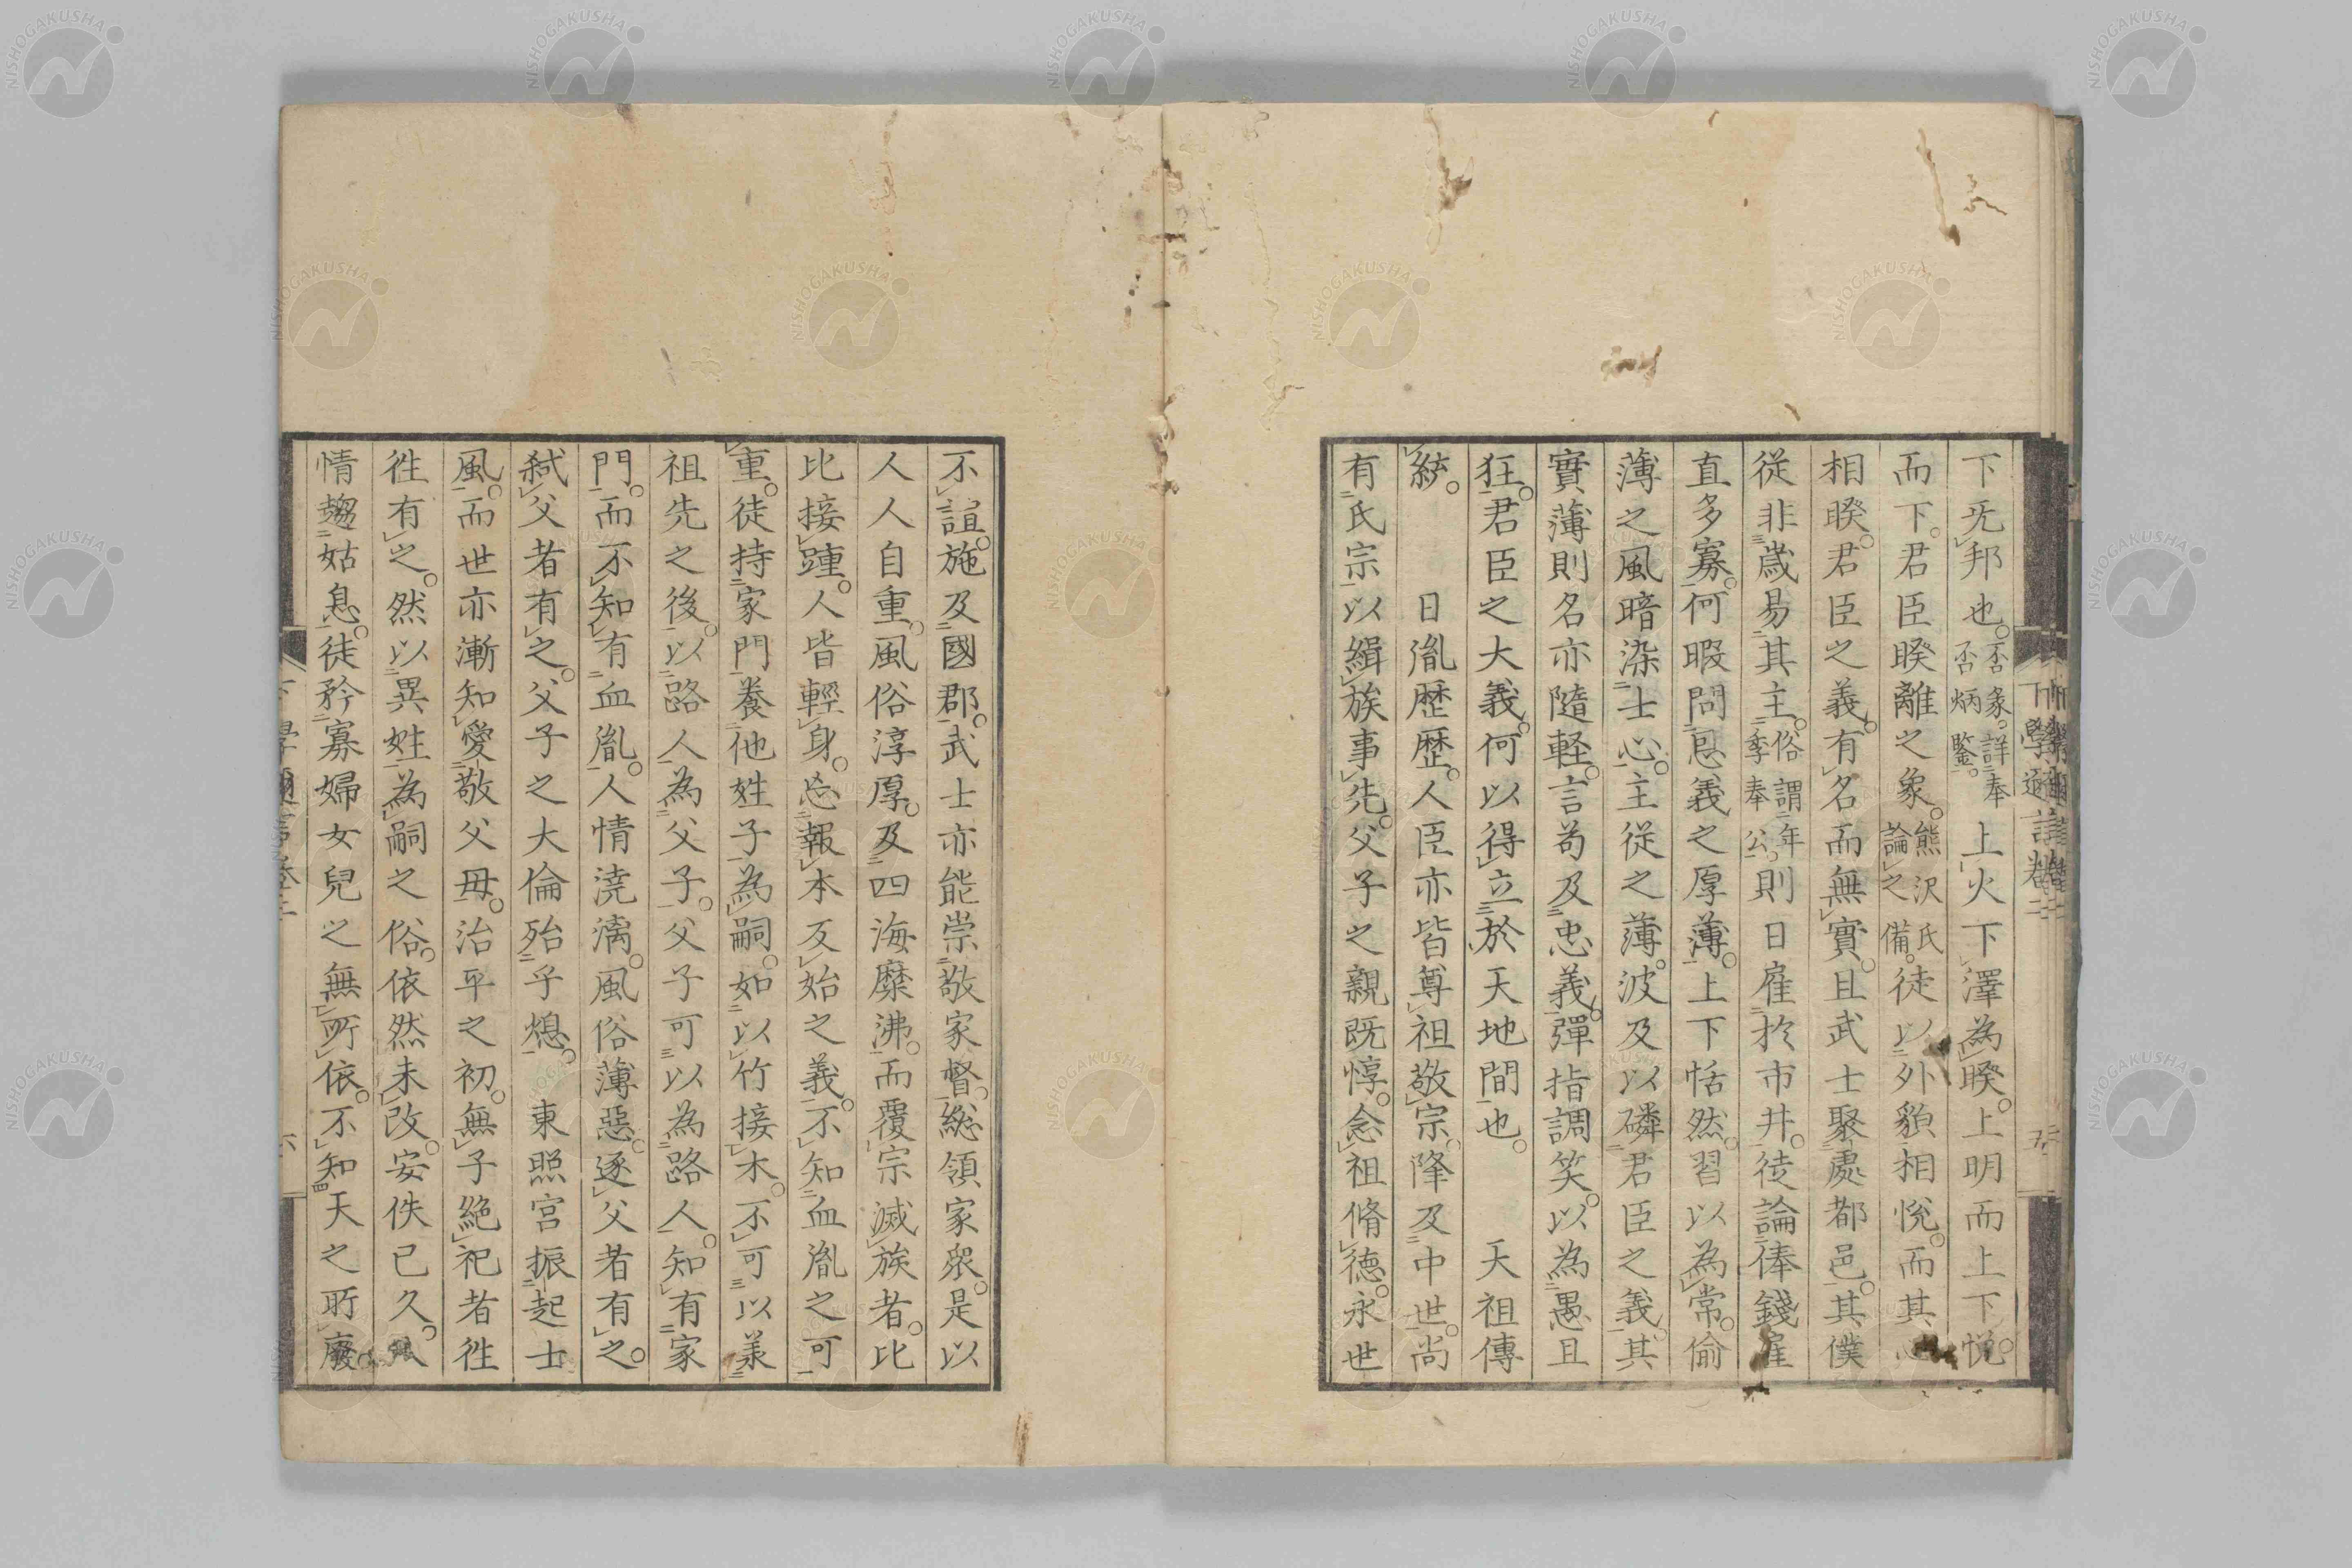 下无邦也。否彖。詳奉否炳鑒。上火下澤為睽。上明而上下悅
而下。君臣睽離之象。熊沢氏論之備。徒以外貌相悅。而其心
相睽。君臣之義。有名而無實。且武士聚處都邑。其僕
從非歲易其主。俗謂年季奉公。則日雇於市井。徒論俸錢雇
直多寡。何暇問恩義之厚薄。上下恬然。習以為常。偷
薄之風暗染士心。主從之薄。波及以磷君臣之義。其
實薄則名亦隨軽。言苟及忠義。彈指調笑。以為愚且
狂。君臣之大義。何以得立於天地間也。 天祖傳
統。 日胤歴歴。人臣亦皆尊祖敬宗。降及中世。尚
有氏宗以緝族事先。父子之親既惇。念祖脩德。永世
不諠。施及國郡。武士亦能崇敬家督。總領家眾。是以
人人自重。風俗淳厚。及四海糜沸。而覆宗滅族者。比
比接踵。人皆輕身。忘報本反始之義。不知血胤之可
重。徒持家門養他姓子為嗣。如以竹接木。不可以羕
祖先之後。以路人為父子。父子可以為路人。知有家
門。而不知有血胤。人情澆漓。風俗薄惡。逐父者有之。
弑父者有之。父子之大倫殆乎熄。東照宮振起士
風。而世亦漸知愛敬父母。治平之初。無子絕祀者徃
徃有之。然以異姓為嗣之俗。依然未改。安佚已久。人
情趨姑息。徒矜寡婦女兒之無所依。不知天之所廢